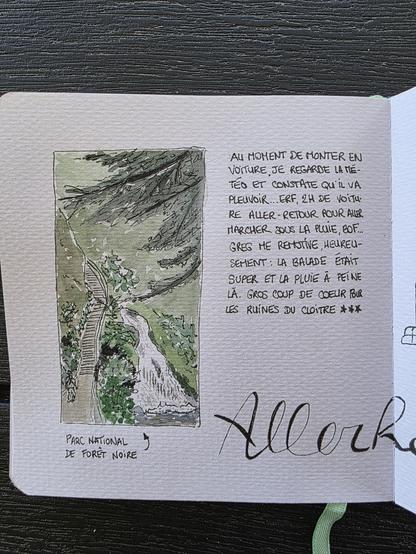 AU MOMENT DE MONTER EN
VOITURE, JE REGARDE LA MÉ-
TÉO ET CONSTATE QU'IL VA
PLEUVOIR... ERF, 2H DE VOITU-
RE ALLER-RETOUR POUR ALLER
MARCHER SOUS LA PLUIE, BOF...
GREG ME REMOTIVE, HEUREU-
SEMENT : LA BALADE ÉTAIT
SUPER ET LA PLUIE À PEINE
LÀ. GROS COUP DE COEUR POUR
LES RUINES DU CLOÎTRE ***
PARC NATIONAL
DE FORÊT NOIRE
Allerh